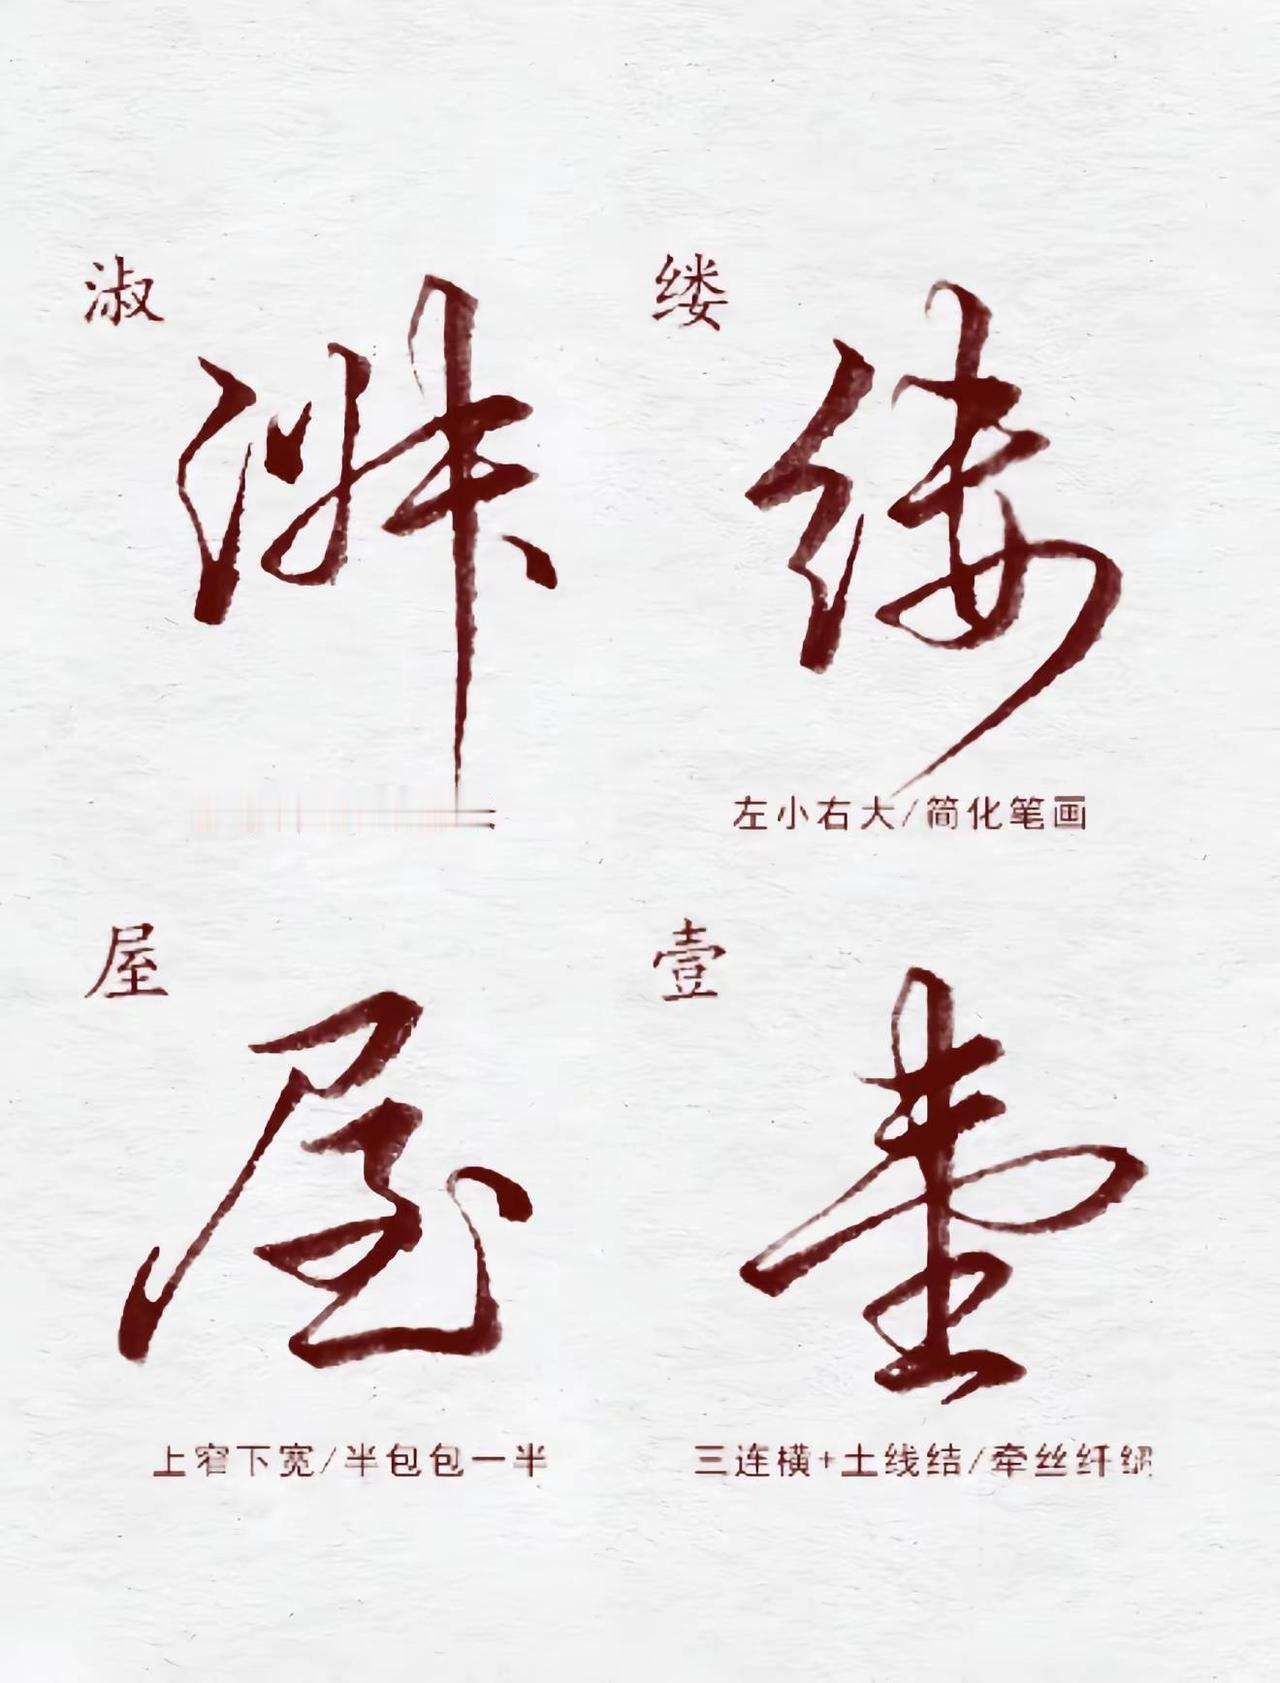 淑
淑
缕
缕
左小右大/简化笔画
屋
屋
上窄下宽/半包包一半
壹
壹
三连横+土线结/牵丝纤细